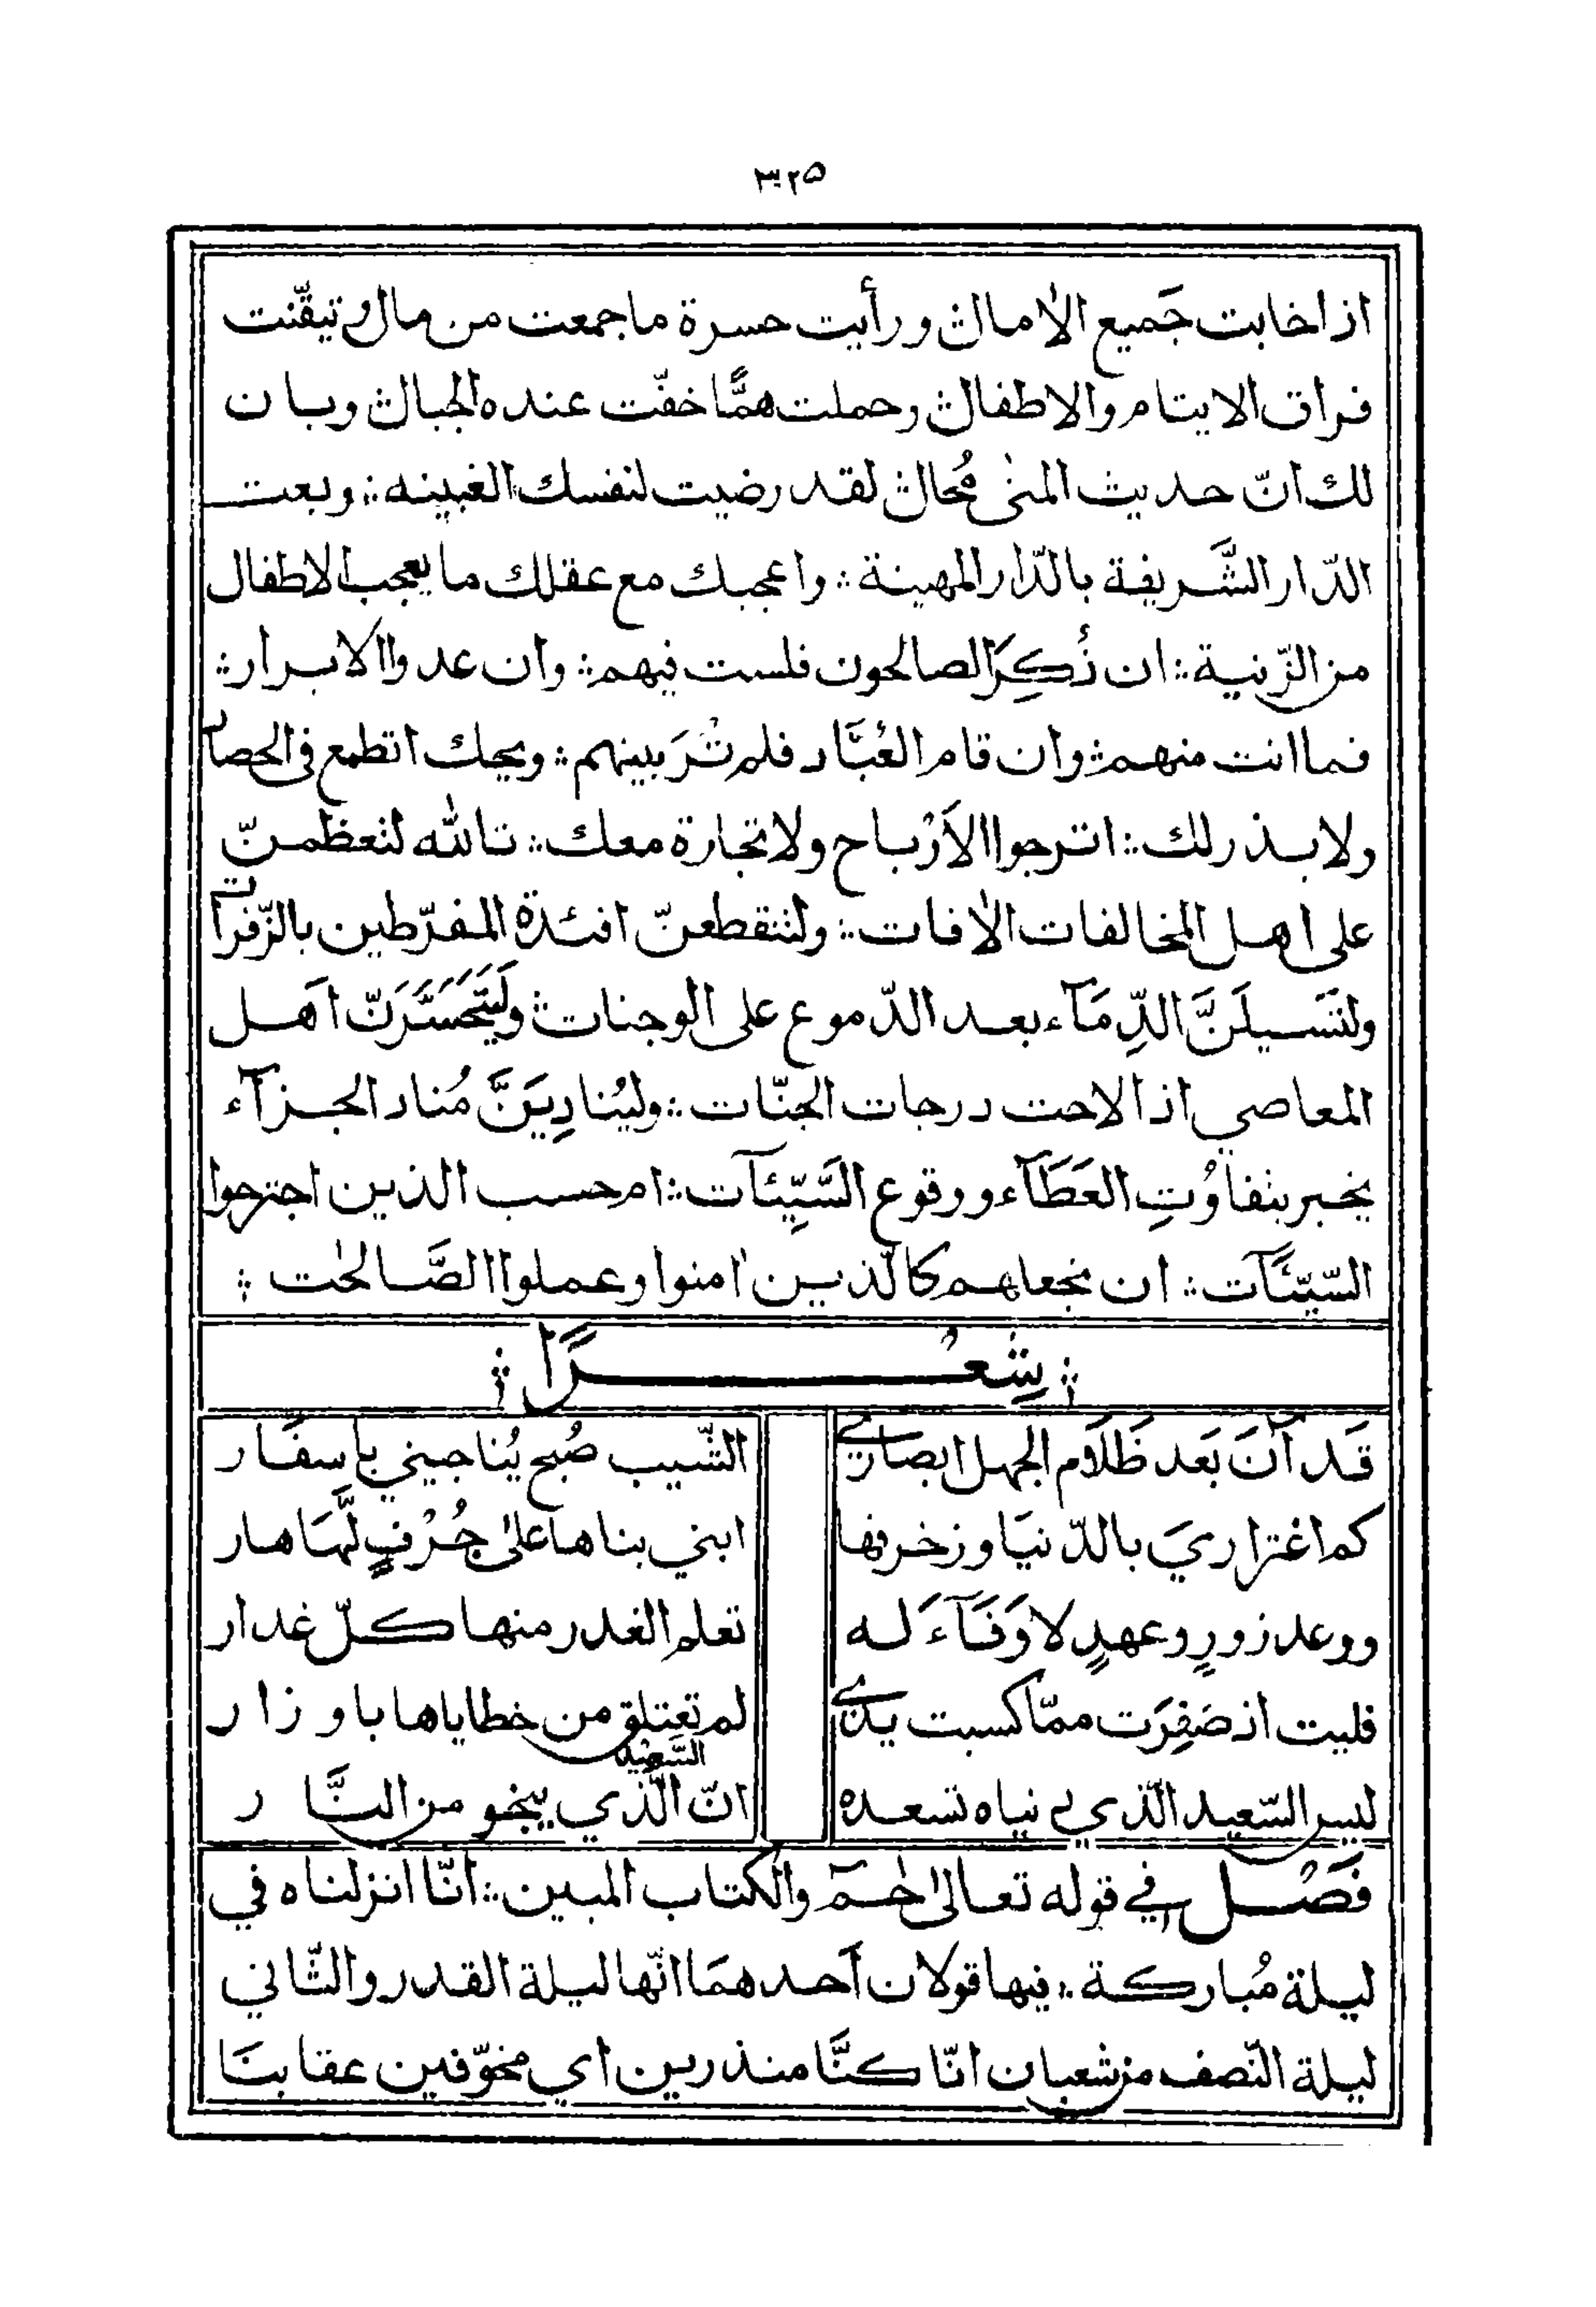 ٣٢٥
اذا خابت جَميع الاٰمال؞ ورأيت حسرة ما جمعت من مال؞ وتيقّنت
فراق الايتام والاطفال؞ وحملت همًّا خفّت عنده الجبال؞ وبان
لك انّ حديث المنىٰ مُحال؞ لقد رضيت لنفسك الغبينه؞ وبعت
الدّار الشَّريفة بالدّار المهينة؞ واعجبك مع عقلك ما يعجب الاطفال
من الزّينية؞ ان ذُكِرَ الصالحون فلست فيهم؞ وان عدوا الابرار؞
فما انت منهم؞ وان قام العُبَّاد فلم تُرَ بينهم؞ ويحك اتطمع في الحصاد
ولا بذر لك؞ اترجوا الاَرْباح ولا تجارة معك؞ تالله لتعظمنّ
على اهل المخالفات الاٰفات؞ ولتتقطعنّ افئدة المفرّطين بالزّفرات
ولتَسيلَنَّ الدِّمَآء بعد الدّموع على الوجنات؞ وَلَيَتَحَسَّرَنّ اَهل
المعاصي اذا لاحت درجات الجنّات؞ وليُنادِيَنَّ مُناد الجزآء
يخبر بتفاوُتِ العَطَآء ووقوع السَّيِّئآت؞ ام حسب الذين اجترحوا
السّيّئآت؞ ان نجعلهم كالّذين اٰمنوا وعملوا الصَّالحٰت؞
؞ شِعْرًا ؞
قَد آنَ بَعد ظَلَام الجهل ابصاري الشّيب صُبح يُناجيني بإسفَار
كم اغتراريَ بالدّنيَا وزخرفها ابني بناها علىٰ جُرْفٍ لَّهَا هار
ووعد زورٍ وعهدٍ لا وَفَآءَ له تعلم الغدر منها كلّ غدار
فليت اذ صَفِرَت ممّا كسبت يدي لم تعتلق من خطاياها باوزار
ليس السّعيد الّذي دنياه تسعده انّ السّعيد الَّذي ينجو من النَّار
فَصْل في قوله تعالىٰ حٰمٓ والكتاب المبين؞ انّا انزلناه في
ليلة مُباركة؞ فيها قولان اَحدهمَا انّها ليلة القدر والثّاني
ليلة النّصف من شعبان انّا كنَّا منذرين اي مخوّفين عقابنَا